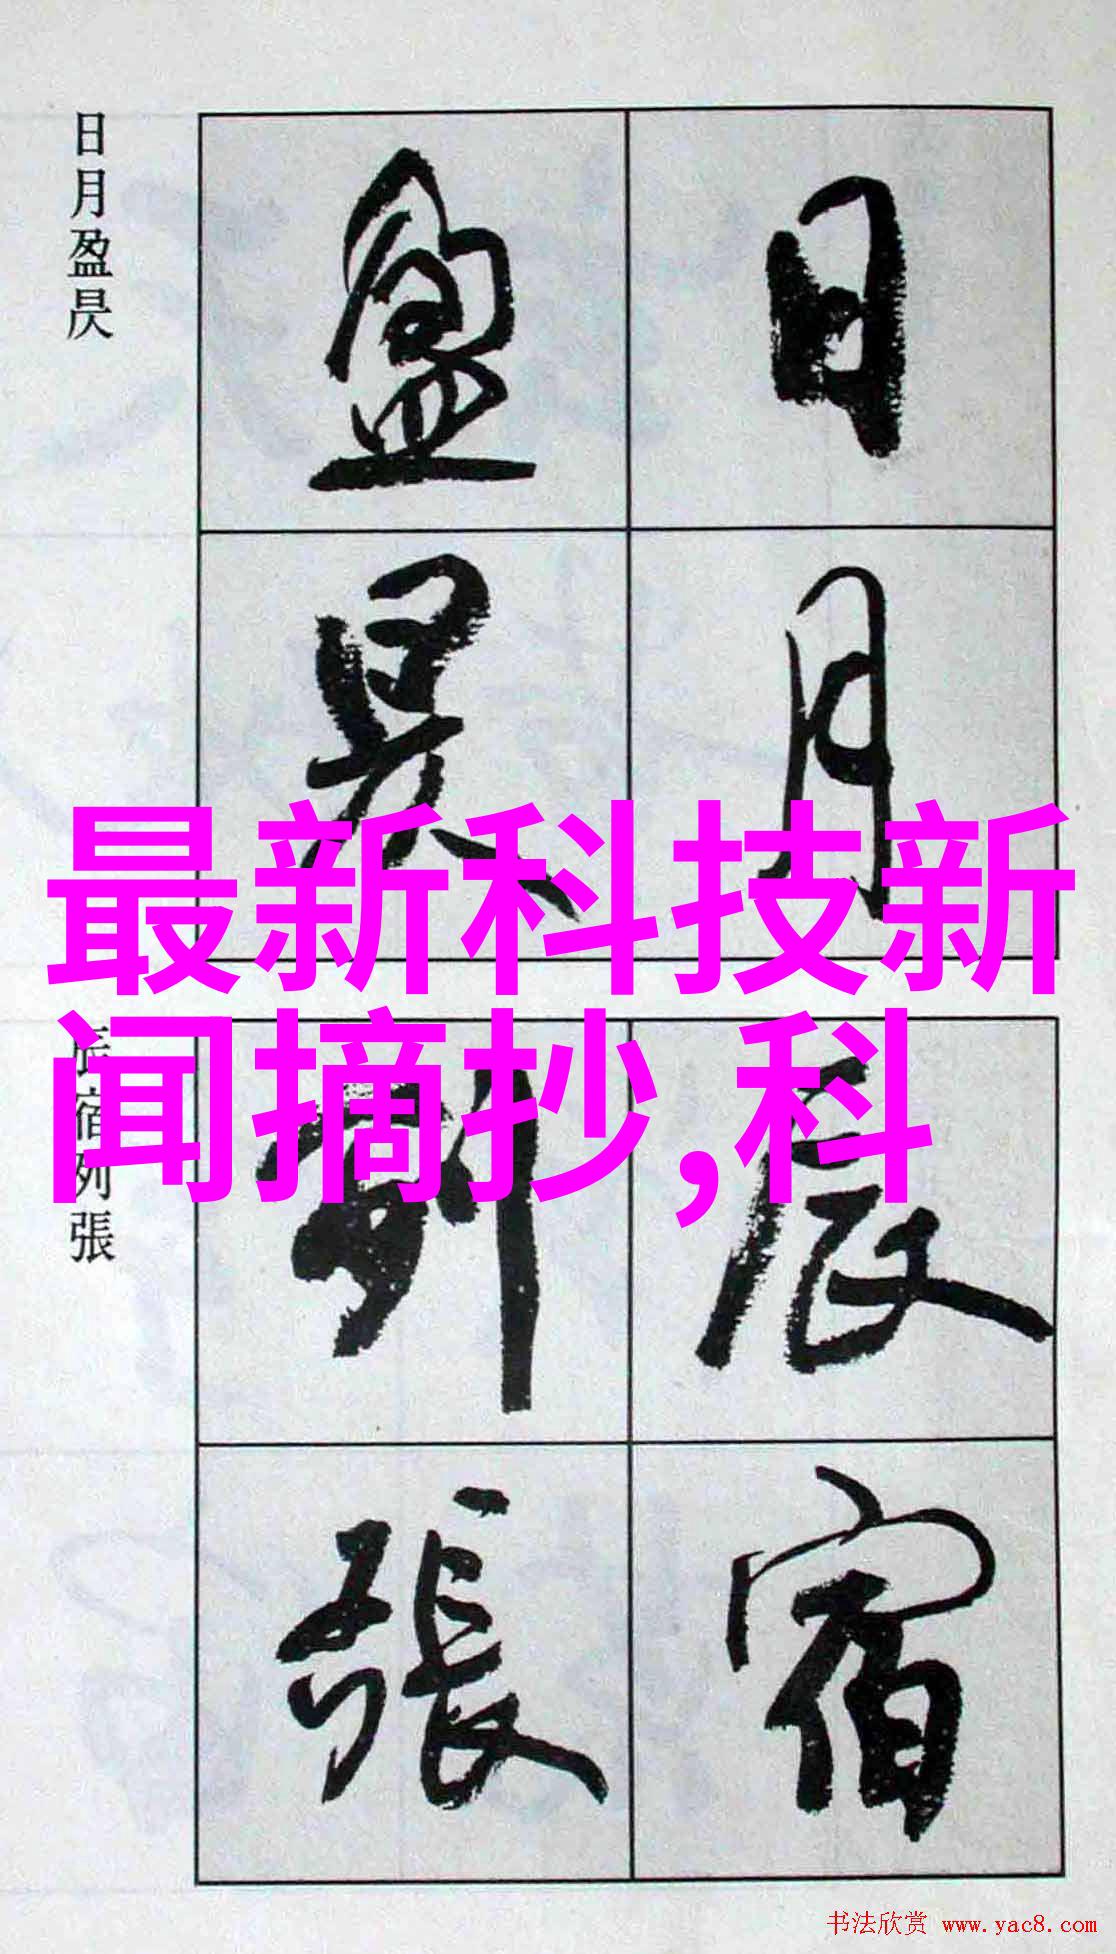 日月
盈昃
日月盈昃
最新科技新
闻摘抄,科
辰宿
列張
辰宿列張
书法欣赏 www.yac8.com